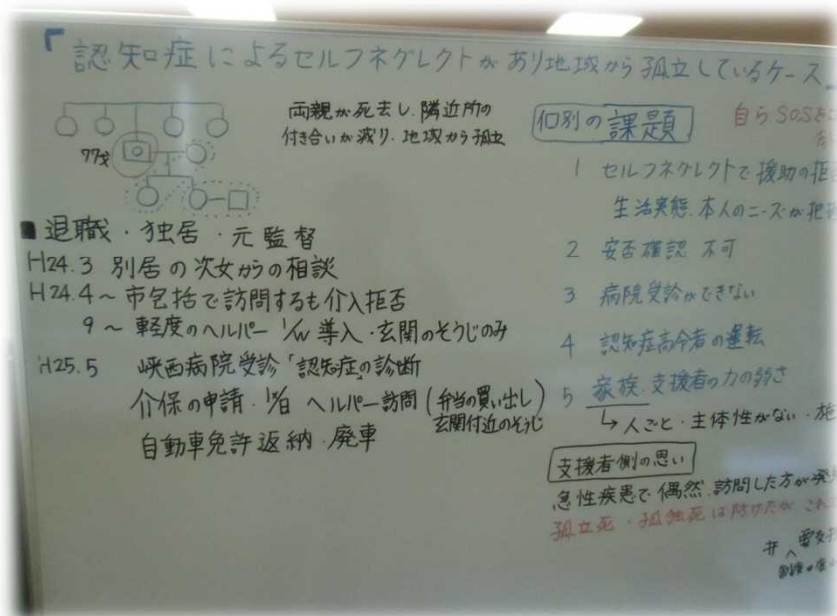 「認知症によるセルフネグレクトがあり地域から孤立しているケース
両親が死去し、隣近所の
付き合いが減り、地域から孤立
77才
■退職・独居・元監督
H24.3 別居の次女からの相談
H24.4〜市包括で訪問するも介入拒否
9〜軽度のヘルパー 1/W 導入・玄関のそうじのみ
H25.5 峡西病院受診「認知症」の診断
介保の申請・1/日 ヘルパー訪問(弁当の買い出し
玄関付近のそうじ)
自動車免許返納・廃車
個別の課題
自らSOSを
1 セルフネグレクトで援助の拒
生活実態、本人のニーズが把
2 安否確認 不可
3 病院受診ができない
4 認知症高令者の運転
5 家族・支援者の力の弱さ
↳人ごと・主体性がない・施
支援者側の思い
急性疾患で偶然、訪問した方が発
孤立死・孤独死は防げたが これ